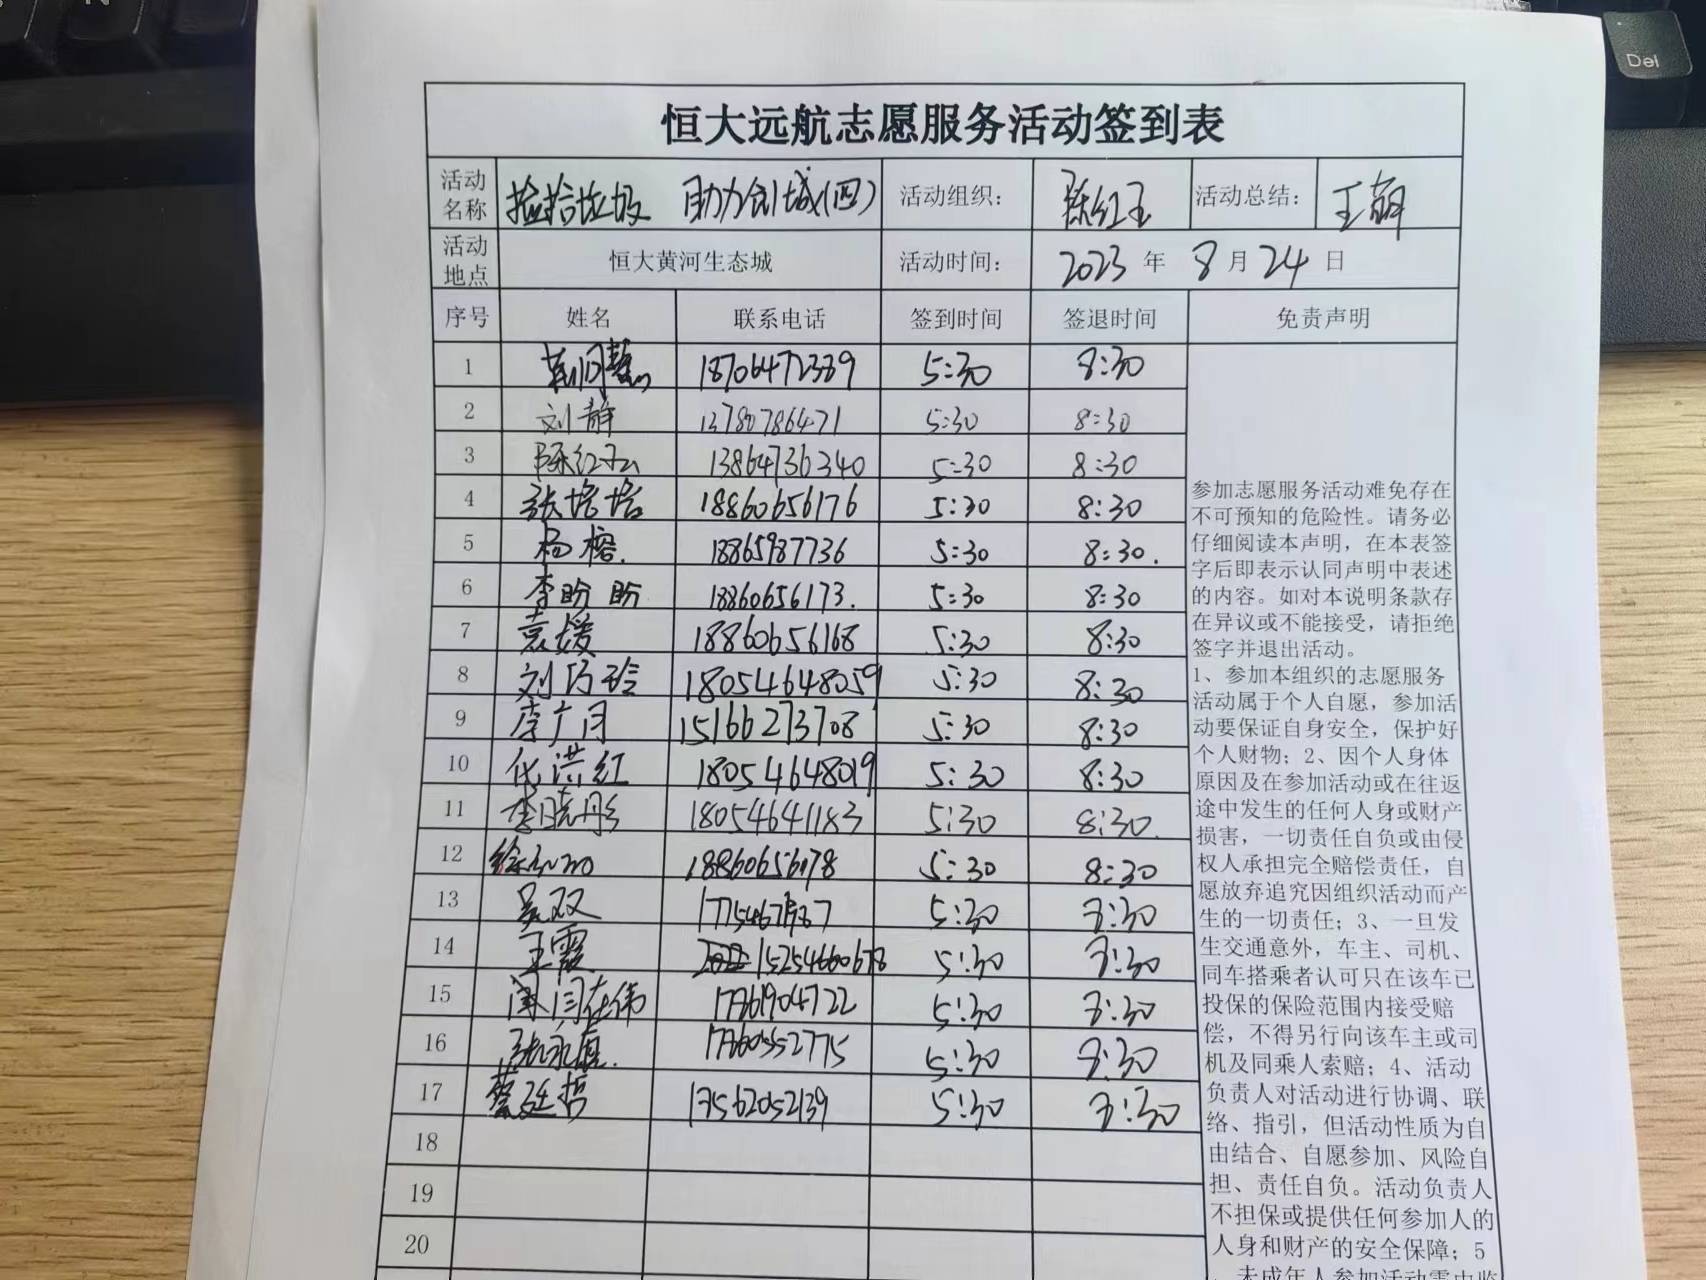 Del
恒大远航志愿服务活动签到表
活动名称 捡拾垃圾 助力创城(四) 活动组织： 陈红玉 活动总结： 王萌
活动地点 恒大黄河生态城 活动时间： 2023 年 8 月 24 日
序号 姓名 联系电话 签到时间 签退时间 免责声明
1 18706472339 5:30 8:30
2 刘静 13780786471 5:30 8:30
3 陈红玉 13864736340 5:30 8:30
4 张培培 18860656176 5:30 8:30
5 杨榕. 18865987736 5:30 8:30.
6 李盼盼 18860656173. 5:30 8:30
7 袁媛 18860656168 5:30 8:30
8 刘巧玲 18054648059 5:30 8:30
9 李广月 15166273708 5:30 8:30
10 代洪红 18054648019 5:30 8:30
11 李晓彤 18054641183 5:30 8:30.
12 18860656178 5:30 8:30
13 吴双 5:30 8:30
14 王霞 15254660678 5:30 8:30
15 闫在伟 17861904722 5:30 8:30
16 17860552775 5:30 8:30
17 蔡廷哲 13562052139 5:30 8:30
18
19
20
参加志愿服务活动难免存在
不可预知的危险性。请务必
仔细阅读本声明，在本表签
字后即表示认同声明中表述
的内容。如对本说明条款存
在异议或不能接受，请拒绝
签字并退出活动。
1、参加本组织的志愿服务
活动属于个人自愿，参加活
动要保证自身安全，保护好
个人财物；2、因个人身体
原因及在参加活动或在往返
途中发生的任何人身或财产
损害，一切责任自负或由侵
权人承担完全赔偿责任，自
愿放弃追究因组织活动而产
生的一切责任；3、一旦发
生交通意外，车主、司机、
同车搭乘者认可只在该车已
投保的保险范围内接受赔
偿，不得另行向该车主或司
机及同乘人索赔；4、活动
负责人对活动进行协调、联
络、指引，但活动性质为自
由结合、自愿参加、风险自
担、责任自负。活动负责人
不担保或提供任何参加人的
人身和财产的安全保障；5
、未成年人参加活动需由监